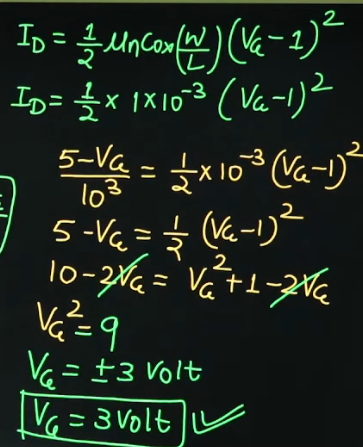 I_D = 1/2 μnCox(W/L)(V_G - 1)^2
I_D = 1/2 × 1×10^-3 (V_G-1)^2
(5-V_G)/10^3 = 1/2 × 10^-3 (V_G-1)^2
5-V_G = 1/2 (V_G-1)^2
10-2V_G = V_G^2+1-2V_G
V_G^2=9
V_G = ±3 volt
V_G = 3 volt